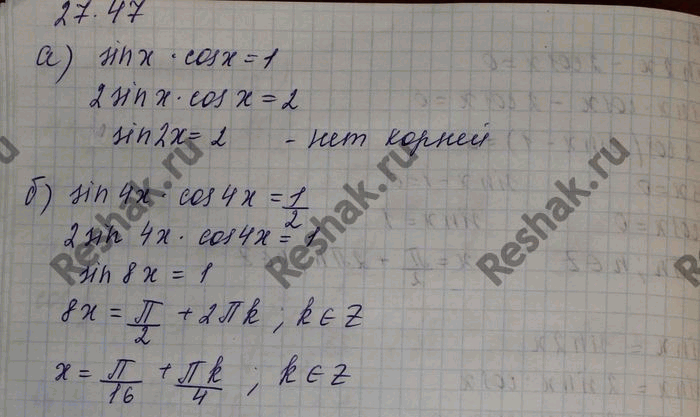 27.47
а) sinx · cosx = 1
2sinx · cosx = 2
sin2x = 2 - нет корней
б) sin4x · cos4x = 1/2
2sin4x · cos4x = 1
sin8x = 1
8x = π/2 + 2πk ; k ∈ Z
x = π/16 + πk/4 ; k ∈ Z
Reshak.ru
Reshak.ru
Reshak.ru
Reshak.ru
Reshak.ru
Reshak.ru